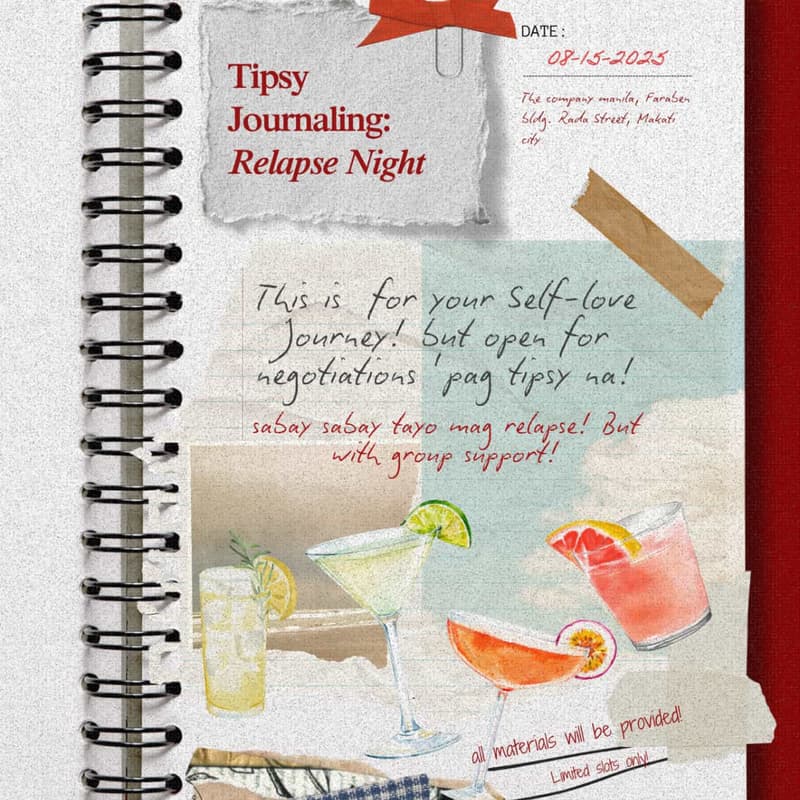 Tipsy
Journaling:
Relapse Night
DATE:
08-15-2025
The company manila, Faraben
bldg. Rada Street, Makati
city
This is for your Self-love
Journey! but open for
negotiations 'pag tipsy na!
sabay sabay tayo mag relapse! But
with group support!
all materials will be provided!
Limited slots only!